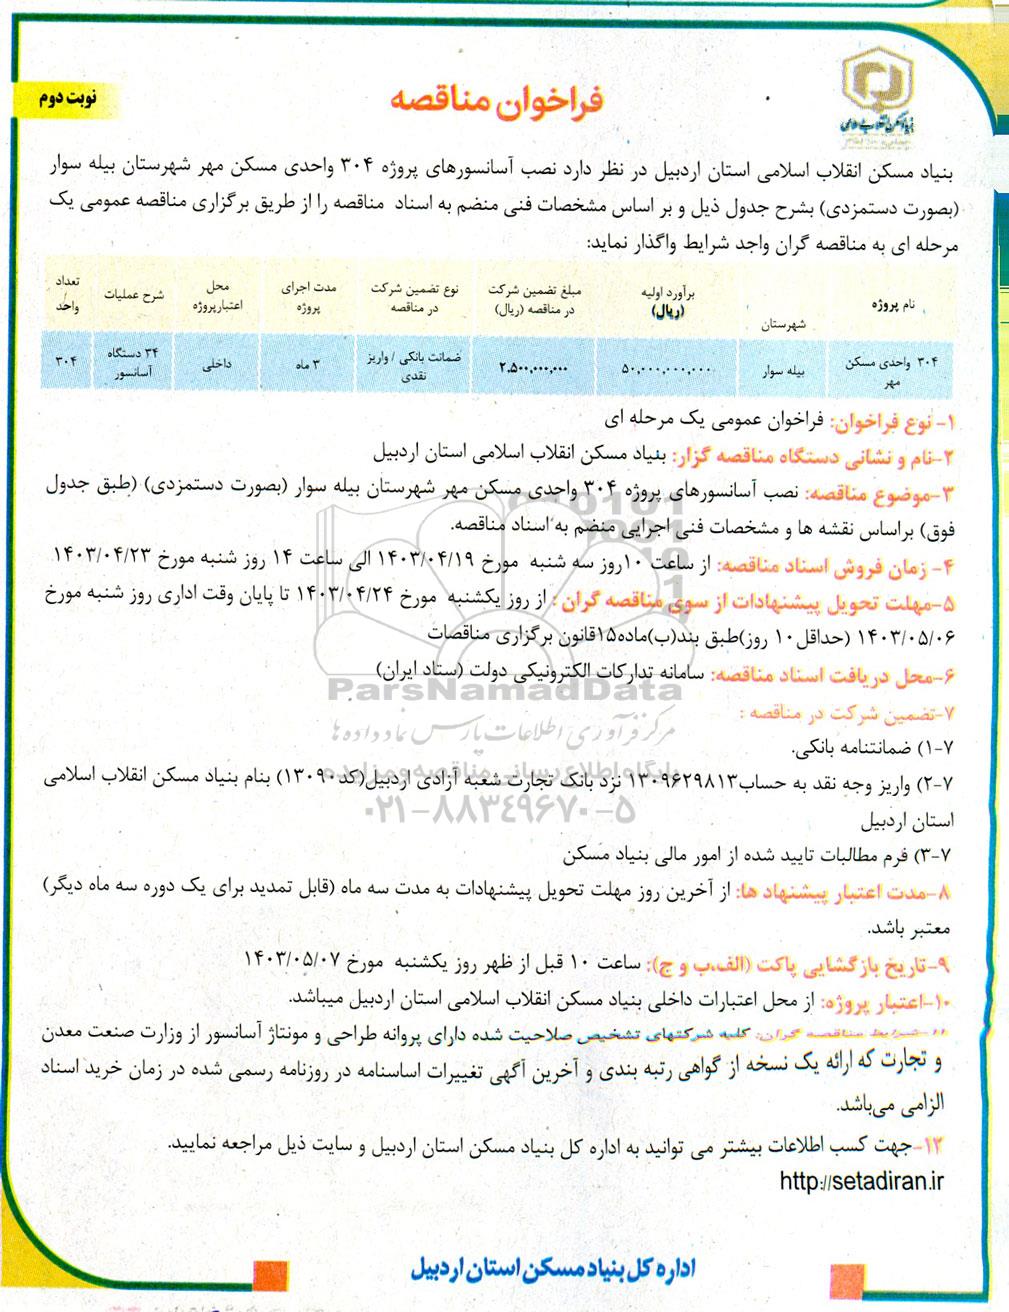 بنیاد مسکن انقلاب اسلامی
نوبت دوم
فراخوان مناقصه
بنیاد مسکن انقلاب اسلامی استان اردبیل در نظر دارد نصب آسانسورهای پروژه ۳۰۴ واحدی مسکن مهر شهرستان بیله سوار
(بصورت دستمزدی) بشرح جدول ذیل و بر اساس مشخصات فنی منضم به اسناد مناقصه را از طریق برگزاری مناقصه عمومی یک
مرحله ای به مناقصه گران واجد شرایط واگذار نماید:
نام پروژه | شهرستان | برآورد اولیه (ریال) | مبلغ تضمین شرکت در مناقصه (ریال) | نوع تضمین شرکت در مناقصه | مدت اجرای پروژه | محل اعتبارپروژه | شرح عملیات | تعداد واحد
۳۰۴ واحدی مسکن مهر | بیله سوار | ۵۰,۰۰۰,۰۰۰,۰۰۰ | ۲,۵۰۰,۰۰۰,۰۰۰ | ضمانت بانکی / واریز نقدی | ۳ ماه | داخلی | ۳۴ دستگاه آسانسور | ۳۰۴
۱- نوع فراخوان: فراخوان عمومی یک مرحله ای
۲-نام و نشانی دستگاه مناقصه گزار: بنیاد مسکن انقلاب اسلامی استان اردبیل
۳-موضوع مناقصه: نصب آسانسورهای پروژه ۳۰۴ واحدی مسکن مهر شهرستان بیله سوار (بصورت دستمزدی) (طبق جدول
فوق) براساس نقشه ها و مشخصات فنی اجرایی منضم به اسناد مناقصه.
۴- زمان فروش اسناد مناقصه: از ساعت ۱۰روز سه شنبه مورخ ۱۴۰۳/۰۴/۱۹ الی ساعت ۱۴ روز شنبه مورخ ۱۴۰۳/۰۴/۲۳
۵-مهلت تحویل پیشنهادات از سوی مناقصه گران : از روز یکشنبه مورخ ۱۴۰۳/۰۴/۲۴ تا پایان وقت اداری روز شنبه مورخ
۱۴۰۳/۰۵/۰۶ (حداقل۱۰ روز)طبق بند(ب)ماده۱۵قانون برگزاری مناقصات
۶-محل دریافت اسناد مناقصه: سامانه تدارکات الکترونیکی دولت (ستاد ایران)
ParsNamadData
۷-تضمین شرکت در مناقصه :
مرکز فرآوری اطلاعات پارس نماد داده ها
۷-۱) ضمانتنامه بانکی.
پایگاه اطلاع رسانی مناقصه و مزایده
۷-۲) واریز وجه نقد به حساب۱۳۰۹۶۲۹۸۱۳ نزد بانک تجارت شعبه آزادی اردبیل(کد۱۳۰۹۰) بنام بنیاد مسکن انقلاب اسلامی
استان اردبیل
۰۲۱-۸۸۳۴۹۶۷۰-۵
۷-۳) فرم مطالبات تایید شده از امور مالی بنیاد مسکن
۸-مدت اعتبار پیشنهاد ها: از آخرین روز مهلت تحویل پیشنهادات به مدت سه ماه (قابل تمدید برای یک دوره سه ماه دیگر)
معتبر باشد.
۹-تاریخ بازگشایی پاکت (الف،ب و ج): ساعت ۱۰ قبل از ظهر روز یکشنبه مورخ ۱۴۰۳/۰۵/۰۷
۱۰-اعتبار پروژه: از محل اعتبارات داخلی بنیاد مسکن انقلاب اسلامی استان اردبیل میباشد.
۱۱-شرایط مناقصه گران: کلیه شرکتهای تشخیص صلاحیت شده دارای پروانه طراحی و مونتاژ آسانسور از وزارت صنعت معدن
و تجارت که ارائه یک نسخه از گواهی رتبه بندی و آخرین آگهی تغییرات اساسنامه در روزنامه رسمی شده در زمان خرید اسناد
الزامی می‌باشد.
۱۲-جهت کسب اطلاعات بیشتر می توانید به اداره کل بنیاد مسکن استان اردبیل و سایت ذیل مراجعه نمایید.
http://setadiran.ir
اداره کل بنیاد مسکن استان اردبیل